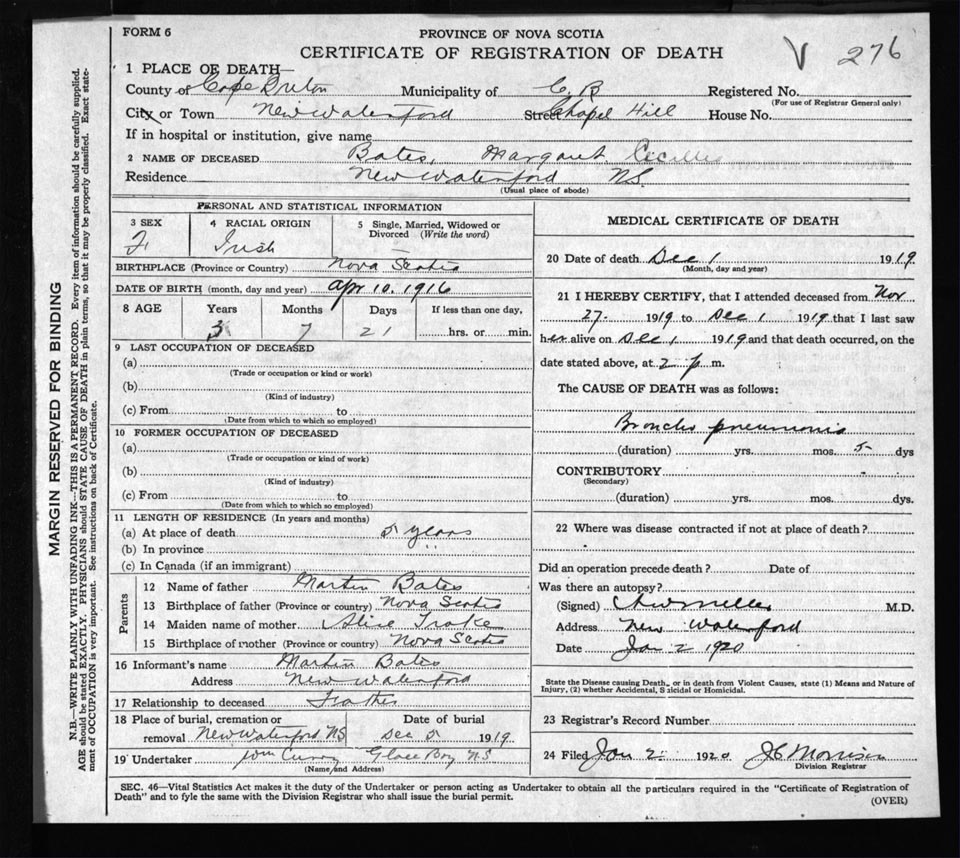 FORM 6
PROVINCE OF NOVA SCOTIA
CERTIFICATE OF REGISTRATION OF DEATH
V 276
1 PLACE OF DEATH—
County of Cape Breton Municipality of C. B Registered No.
(For use of Registrar General only)
City or Town New Waterford Street Chapel Hill House No.
If in hospital or institution, give name
2 NAME OF DECEASED Bates, Margaret
Residence New Waterford N.S.
(Usual place of abode)
PERSONAL AND STATISTICAL INFORMATION
3 SEX F
4 RACIAL ORIGIN Irish
5 Single, Married, Widowed or Divorced (Write the word)
BIRTHPLACE (Province or Country) Nova Scotia
DATE OF BIRTH (month, day and year) Apr 10. 1916
8 AGE Years Months Days If less than one day,
3 7 21 hrs. or min.
9 LAST OCCUPATION OF DECEASED
(a)
(Trade or occupation or kind or work)
(b)
(Kind of industry)
(c) From to
(Date from which to which so employed)
10 FORMER OCCUPATION OF DECEASED
(a)
(Trade or occupation or kind of work)
(b)
(Kind of industry)
(c) From to
(Date from which to which so employed)
11 LENGTH OF RESIDENCE (In years and months)
(a) At place of death years
(b) In province "
(c) In Canada (if an immigrant)
Parents
12 Name of father Martin Bates
13 Birthplace of father (Province or country) Nova Scotia
14 Maiden name of mother Alice
15 Birthplace of mother (Province or country) Nova Scotia
16 Informant's name Martin Bates
Address New Waterford
17 Relationship to deceased Father
18 Place of burial, cremation or Date of burial
removal New Waterford NS Dec 1919
19 Undertaker Wm Curry Glace Bay N.S
(Name and Address)
MEDICAL CERTIFICATE OF DEATH
20 Date of death Dec 1 1919
(Month, day and year)
21 I HEREBY CERTIFY, that I attended deceased from Nov
27 1919 to Dec 1 1919 that I last saw
her alive on Dec 1 1919 and that death occurred, on the
date stated above, at 2 p m.
The CAUSE OF DEATH was as follows:
Broncho pneumonia
(duration) yrs. mos. 5 dys
CONTRIBUTORY
(Secondary)
(duration) yrs. mos. dys.
22 Where was disease contracted if not at place of death?
Did an operation precede death? Date of
Was there an autopsy?
(Signed) M.D.
Address New Waterford
Date Jan 2 1920
State the Disease causing Death, or in death from Violent Causes, state (1) Means and Nature of
Injury, (2) whether Accidental, Suicidal or Homicidal.
23 Registrar's Record Number
24 Filed Jan 2 1920 Morrison
Division Registrar
SEC. 46—Vital Statistics Act makes it the duty of the Undertaker or person acting as Undertaker to obtain all the particulars required in the "Certificate of Registration of
Death" and to fyle the same with the Division Registrar who shall issue the burial permit.
(OVER)
MARGIN RESERVED FOR BINDING
N.B.—WRITE PLAINLY WITH UNFADING INK—THIS IS A PERMANENT RECORD. Every item of information should be carefully supplied.
AGE should be stated EXACTLY. PHYSICIANS should STATE CAUSE OF DEATH in plain terms, so that it may be properly classified. Exact state-
ment of OCCUPATION is very important. See instructions on back of Certificate.